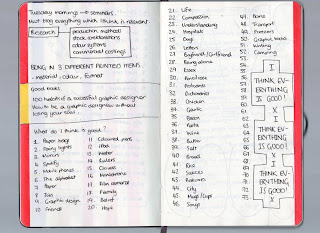 Tuesday morning - seminars.
Just blog everything which I think is relevant
Research
production methods
stock considerations
colour systems
commercial costings
BRING IN 3 DIFFERENT PRINTED ITEMS
- material, colour, format
Good reads:
100 habits of a successful graphic designer
How to be a graphic designer without
losing your soul.
What do I think is good?
1. Paper bags
2. Fairy lights
3. Mirrors
4. Spotify
5. Mobile phones
6. The alphabet
7. Paper
8.
9. Graphic design
10. Friends
11. Coloured pens
12. iPod
13. Water
14. Rulers
15. Clothes
16.
17. Film
18. Family
19. Belief
20. Hope
21. Life
22. Compassion
23. Understanding
24. Hospitals
25. Dogs
26. Letters
27. Boyfriend / Girlfriend
28. Being alone
29. Essex
30.
31. Postcards
32.
33. Chicken
34. Garlic
35. Bacon
36. Pasta
37. Wine
38. Butter
39. Salt
40. Bread
41. Rice
42. Sauces
43. Radiators
44. City
45. Mugs / Cups
46. Songs
47. Bands
48. Transport
49. Planners
50. Graphic Design
51. Writing
52. Camping
I
THINK EV-
ERYTHING
IS GOOD!
I
THINK EV-
ERYTHING
IS GOOD!
I
THINK EV-
ERYTHING
IS GOOD!